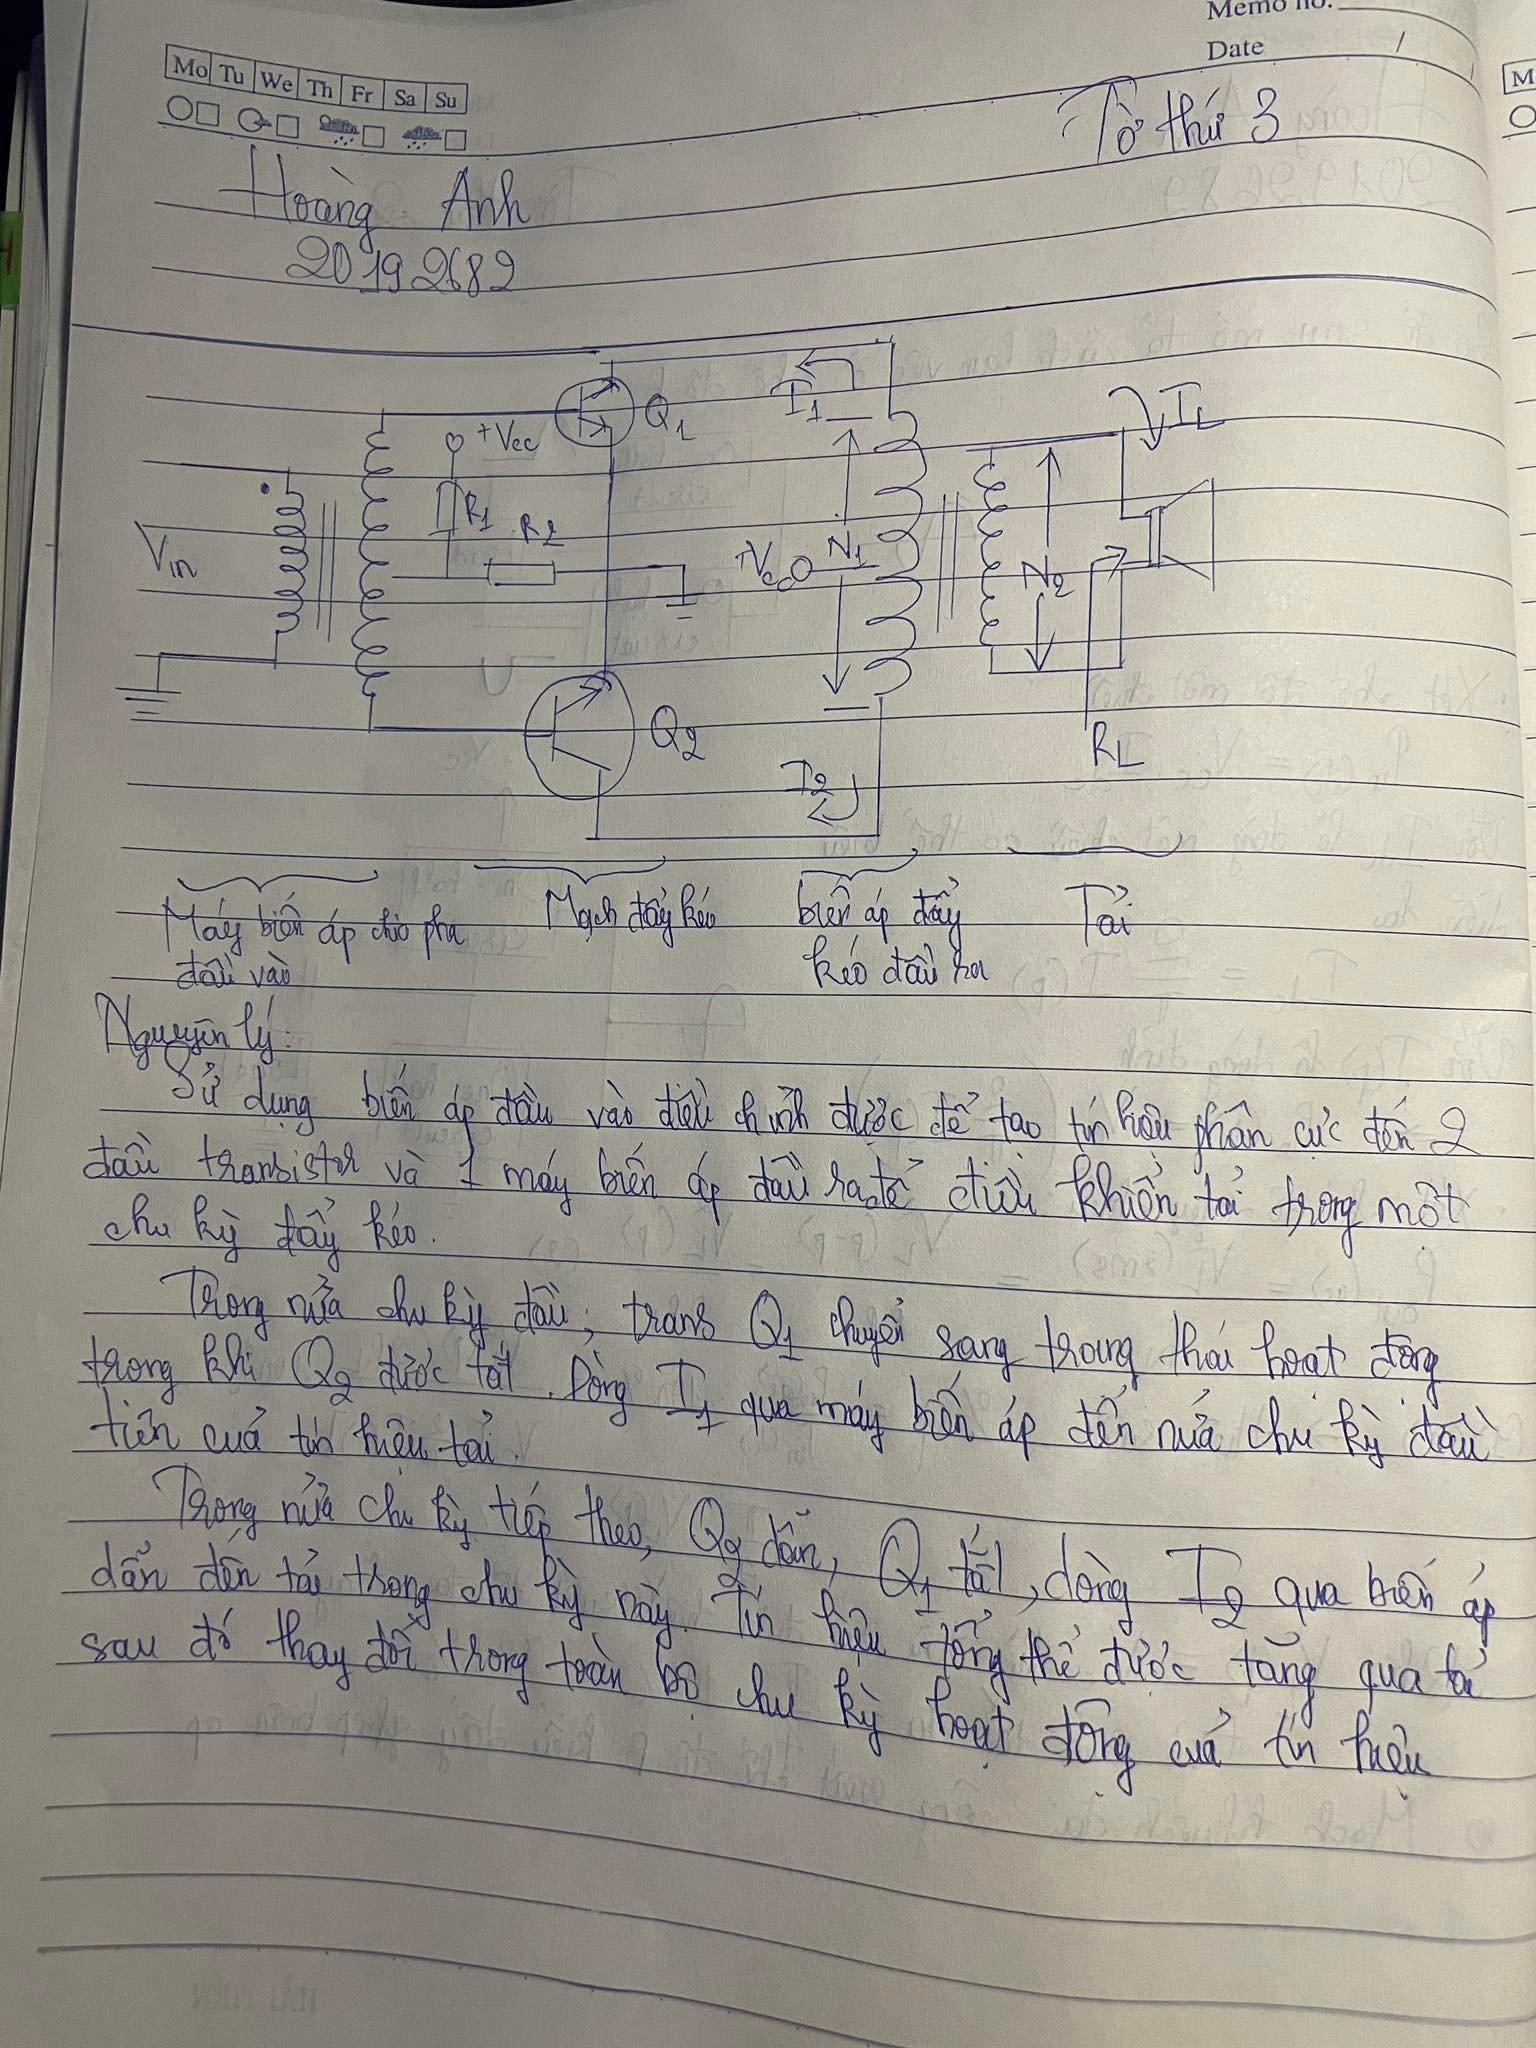 Memo no.
Date / /
Mo Tu We Th Fr Sa Su
M
Tờ thứ 3
Hoàng Anh
20192682
Q1
I1
IL
+Vcc
R1
R2
Vin
+Vcc
N1
N2
Q2
I2
RL
Máy biến áp chia pha
đầu vào
Mạch đẩy kéo
biến áp đẩy
kéo đầu ra
Tải
Nguyên lý:
Sử dụng biến áp đầu vào điều chỉnh được để tạo tín hiệu phân cực đến 2
đầu transistor và 1 máy biến áp đầu ra để điều khiển tải trong một
chu kỳ đẩy kéo.
Trong nửa chu kỳ đầu, trans Q1 chuyển sang trạng thái hoạt động
trong khi Q2 được tắt. Dòng I1 qua máy biến áp đến nửa chu kỳ đầu
tiên của tín hiệu tải.
Trong nửa chu kỳ tiếp theo, Q2 dẫn, Q1 tắt, dòng I2 qua biến áp
dẫn đến tải trong chu kỳ này. Tín hiệu tổng thể được tăng qua tải
sau đó thay đổi trong toàn bộ chu kỳ hoạt động của tín hiệu